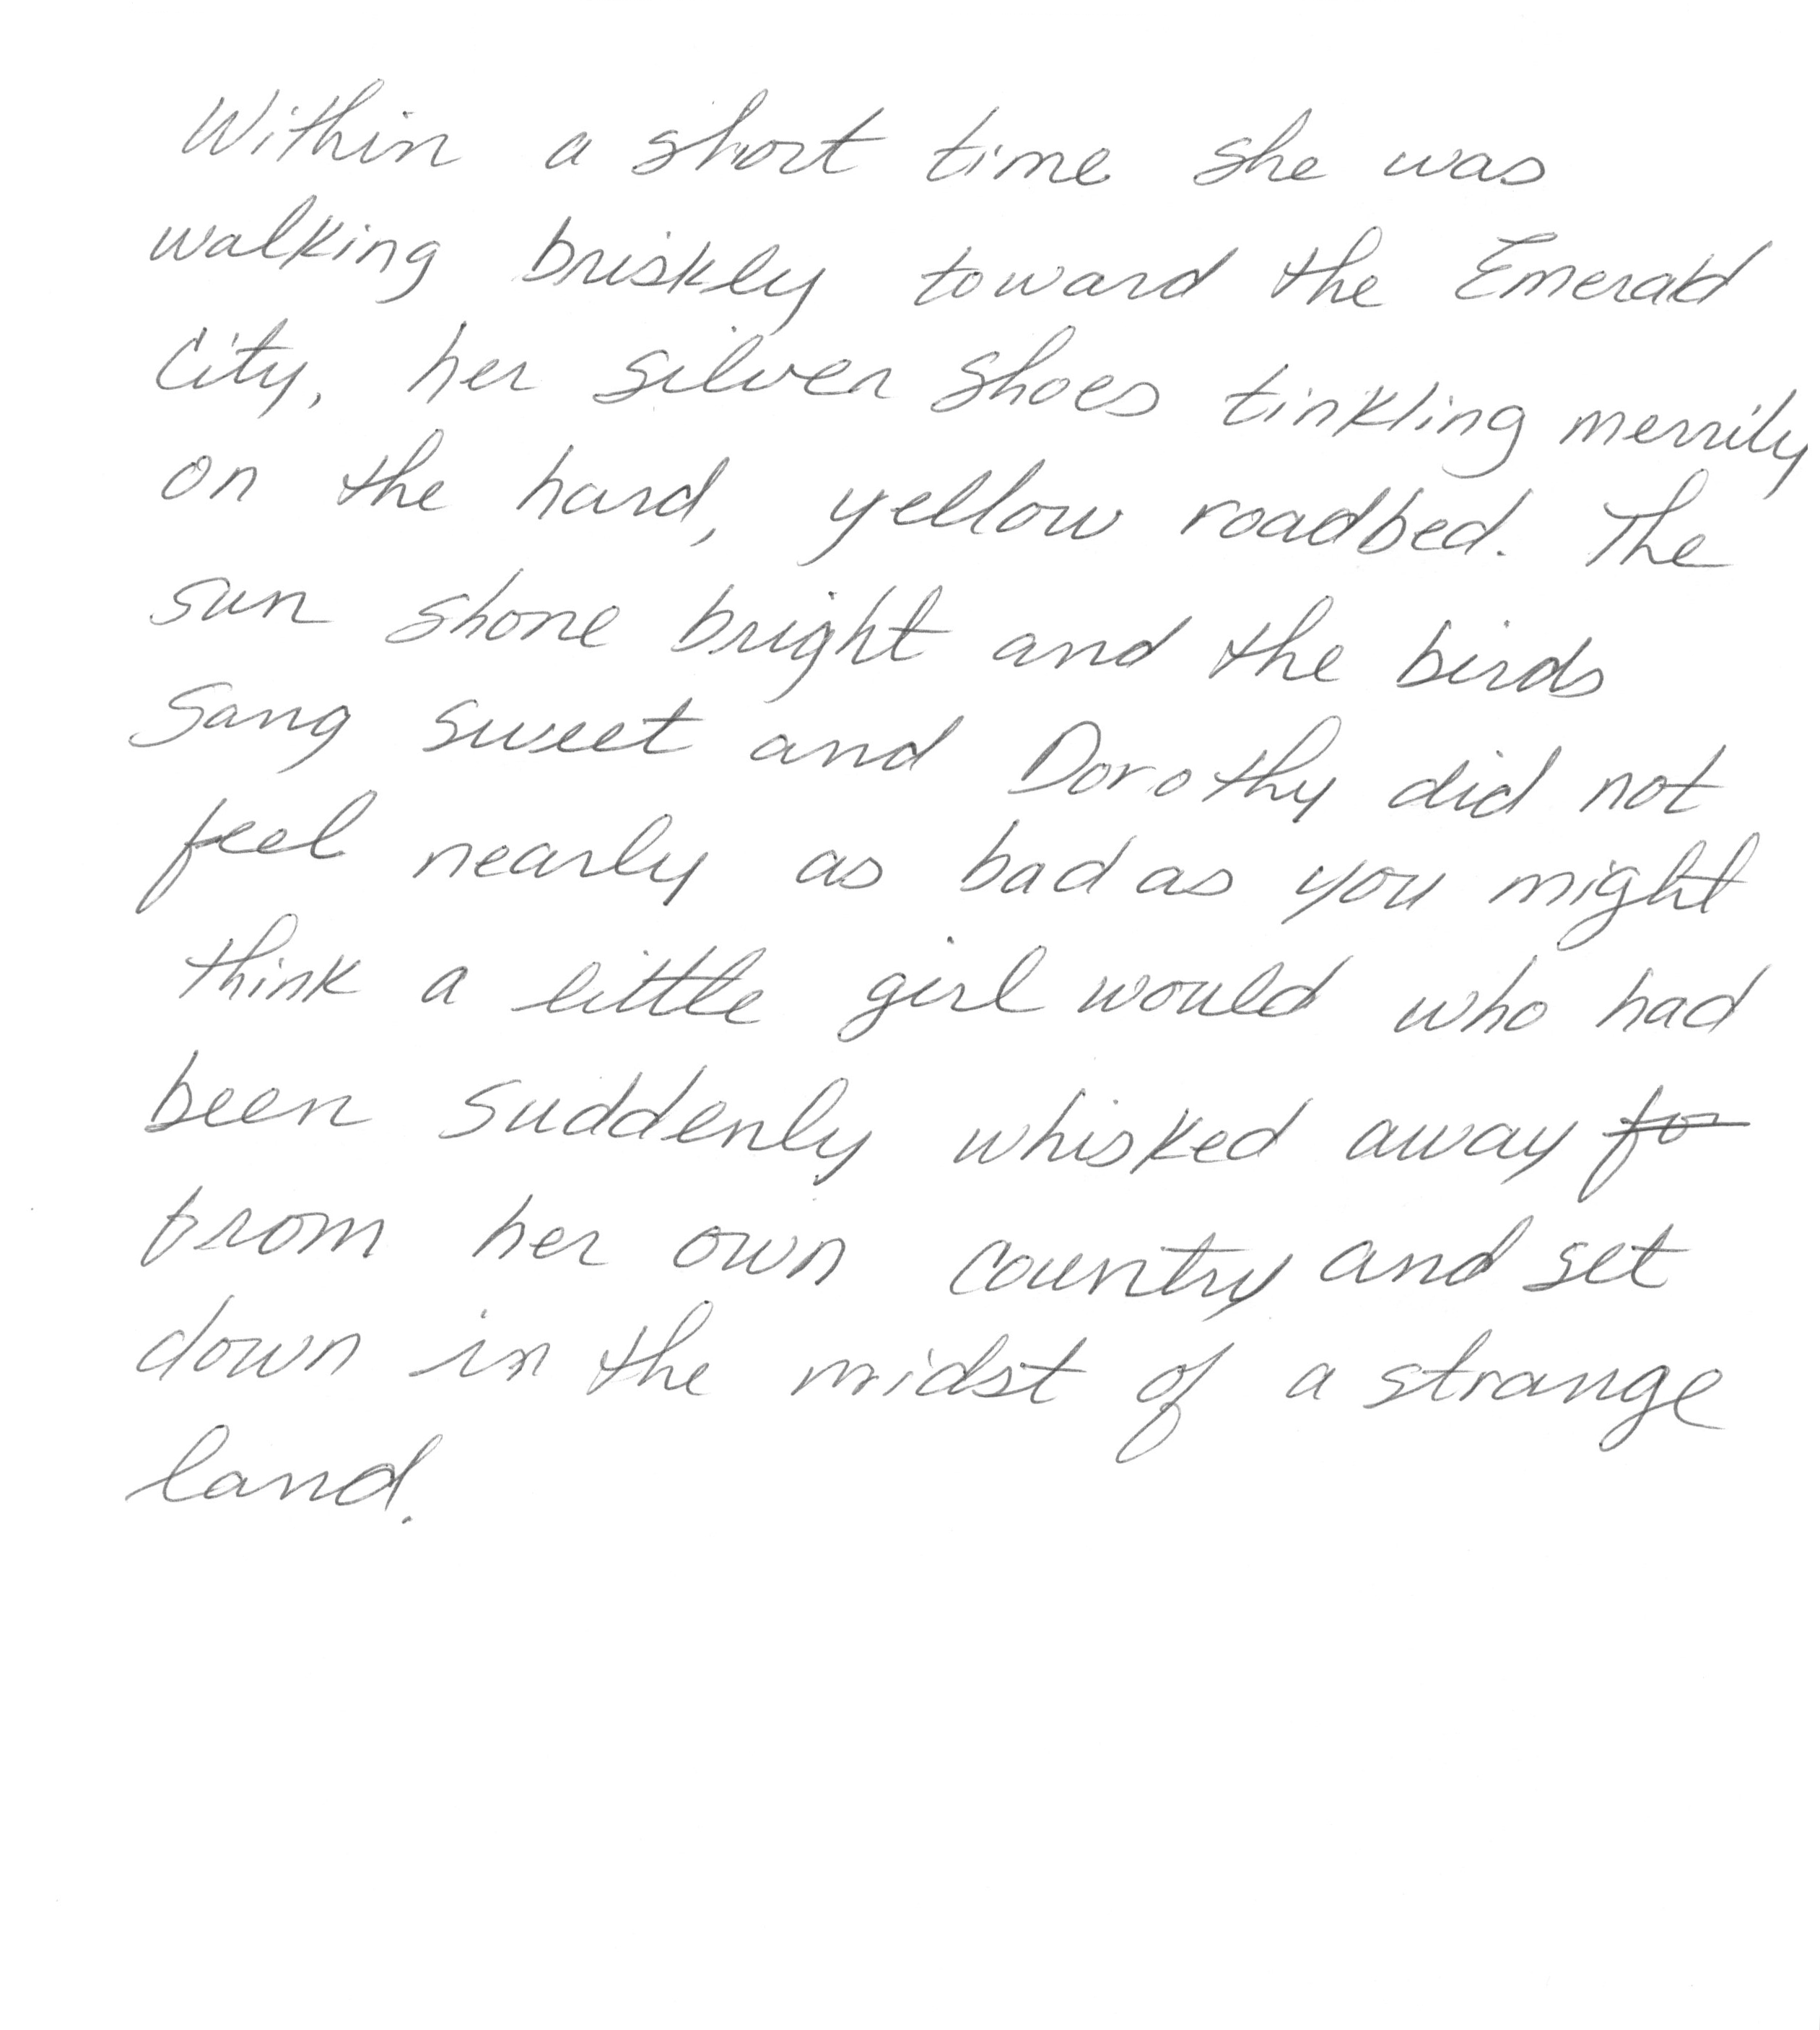 Within a short time she was
walking briskly toward the Emerald
City, her silver shoes tinkling merrily
on the hard, yellow roadbed. The
sun shone bright and the birds
sang sweet and Dorothy did not
feel nearly as bad as you might
think a little girl would who had
been suddenly whisked away for
from her own country and set
down in the midst of a strange
land.